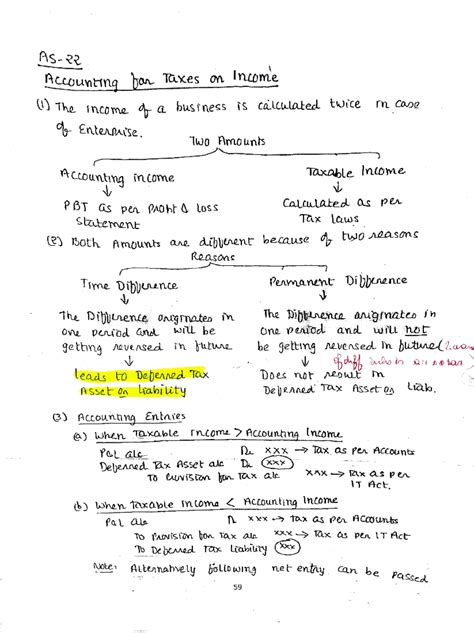 AS-22
Accounting for Taxes on Income
(1) The income of a business is calculated twice in case
of Enterprise.
Two Amounts
Accounting income
Taxable Income
PBT as per Profit & loss
Statement
Calculated as per
Tax laws
(2) Both Amounts are different because of two reasons
Reasons
Time Difference
Permanent Difference
The Difference originates in
one period and will be
getting reversed in future
leads to Deferred Tax
Asset or liability
The Difference originates in
one period and will not
be getting reversed in future
of diff
Does not result in
Deferred Tax Asset or Liab.
(3) Accounting Entries
(a) When Taxable income > Accounting Income
P&L a/c Dr xxx → Tax as per Accounts
Deferred Tax Asset a/c Dr xxx
To Provision for Tax a/c xxx → Tax as per
IT Act.
(b) When Taxable Income < Accounting Income
P&L a/c Dr xxx → Tax as per Accounts
To Provision for Tax a/c xxx → Tax as per IT Act
To Deferred Tax Liability xxx
Note: Alternatively following net entry can be passed
59